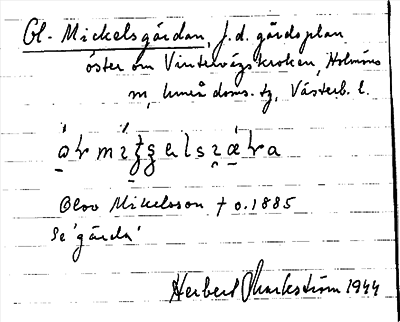 Gl. Mickelsgårdan, f.d. gårdsplan
öster om Vintervägskroken, Holmöns
sn, Umeå doms. tg, Västerb. l.
Olov Mikelsson † o. 1885
Se 'gårda'
Herbert Markström 1944